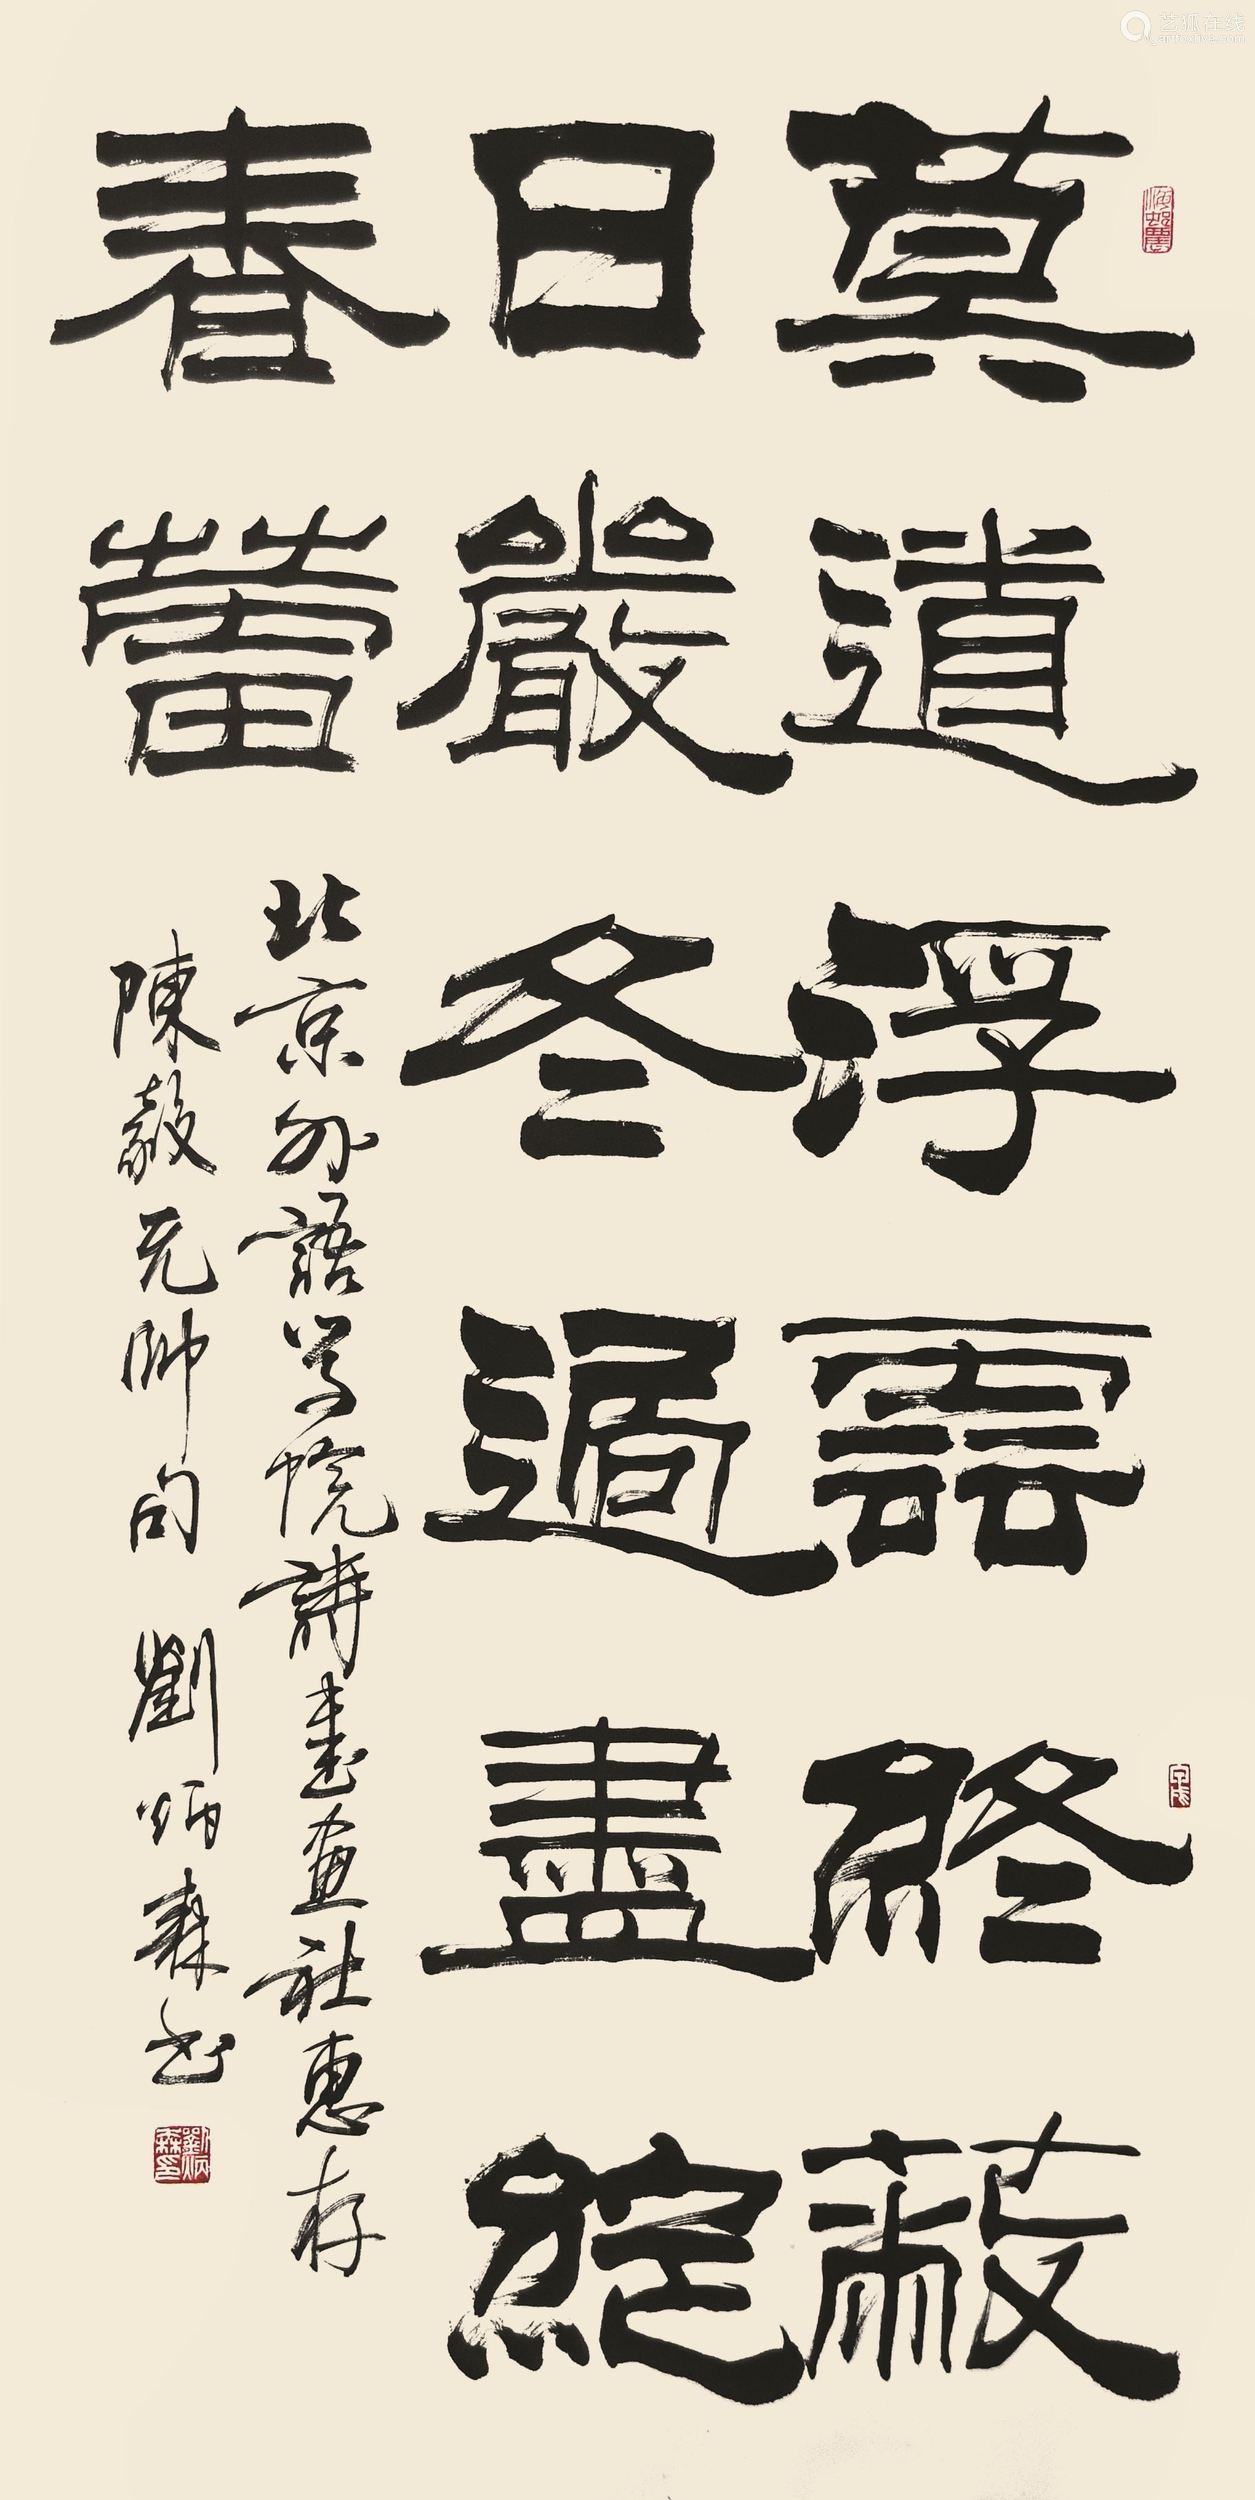 莫道浮雲終蔽
日嚴冬過盡綻
春蕾
北京外語学院詩書畫社惠存
陳毅元帥句 劉炳森书
劉炳森印
艺狐在线
artfoxlive.com